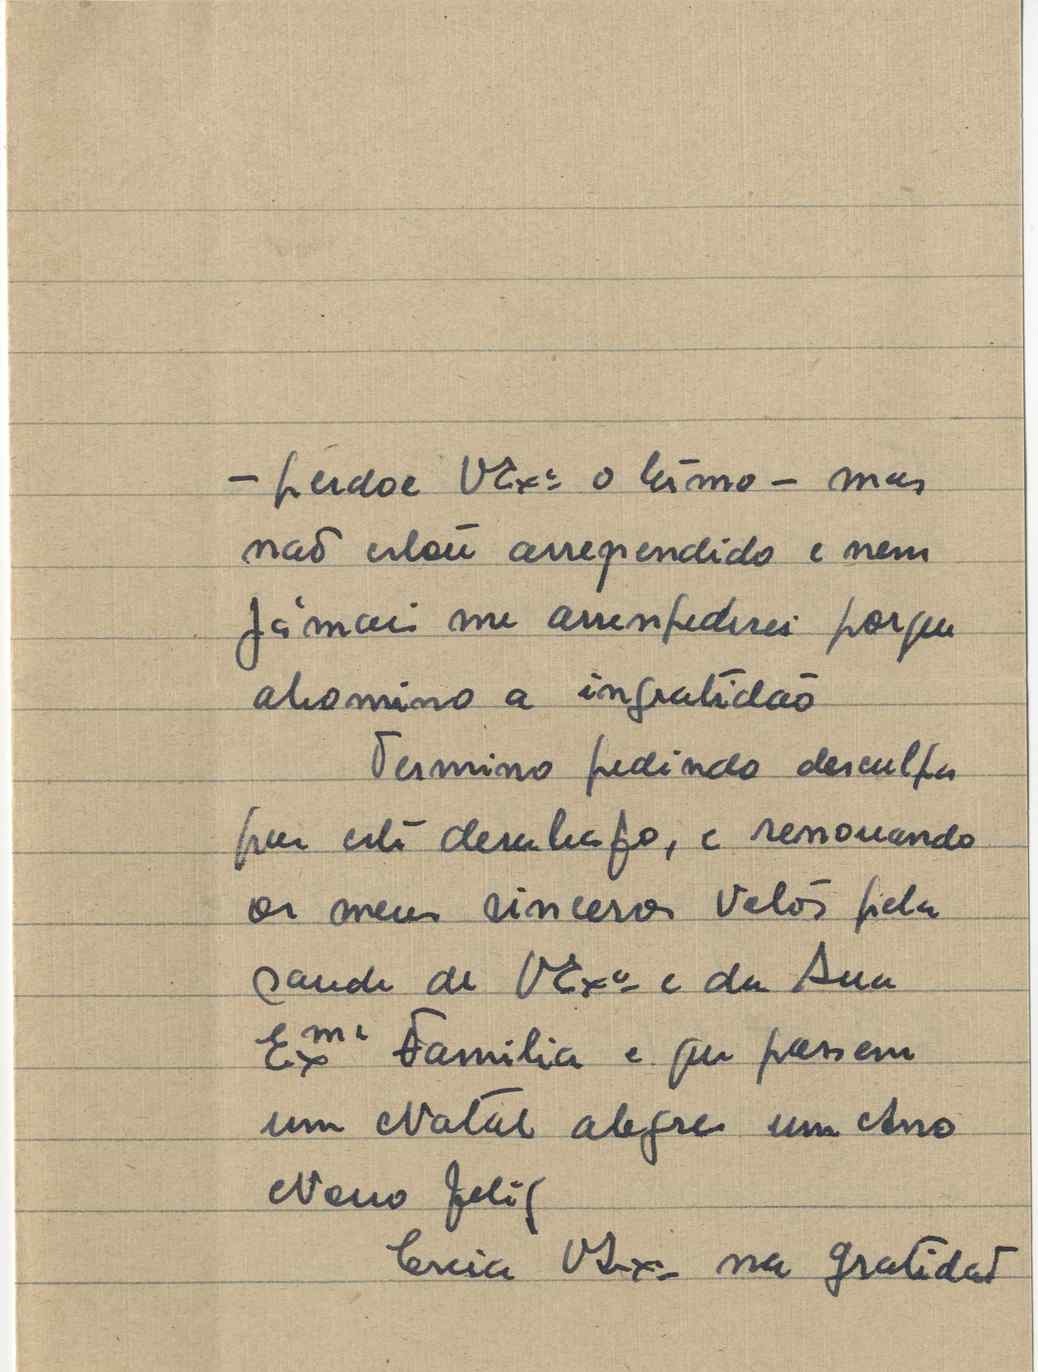 - perdoe V Exª o têrmo - mas
naõ estou arrependido e nem
jámais me arrenpederei porque
abomino a ingratidaõ
Termino pedindo desculpa
por este desabafo, e renovando
os meus sinceros votos pela
saude de V Exª e da Sua
Exmª Familia e que passem
um Natal alegre um Ano
Novo feliz
Creia V Exª na gratidaõ